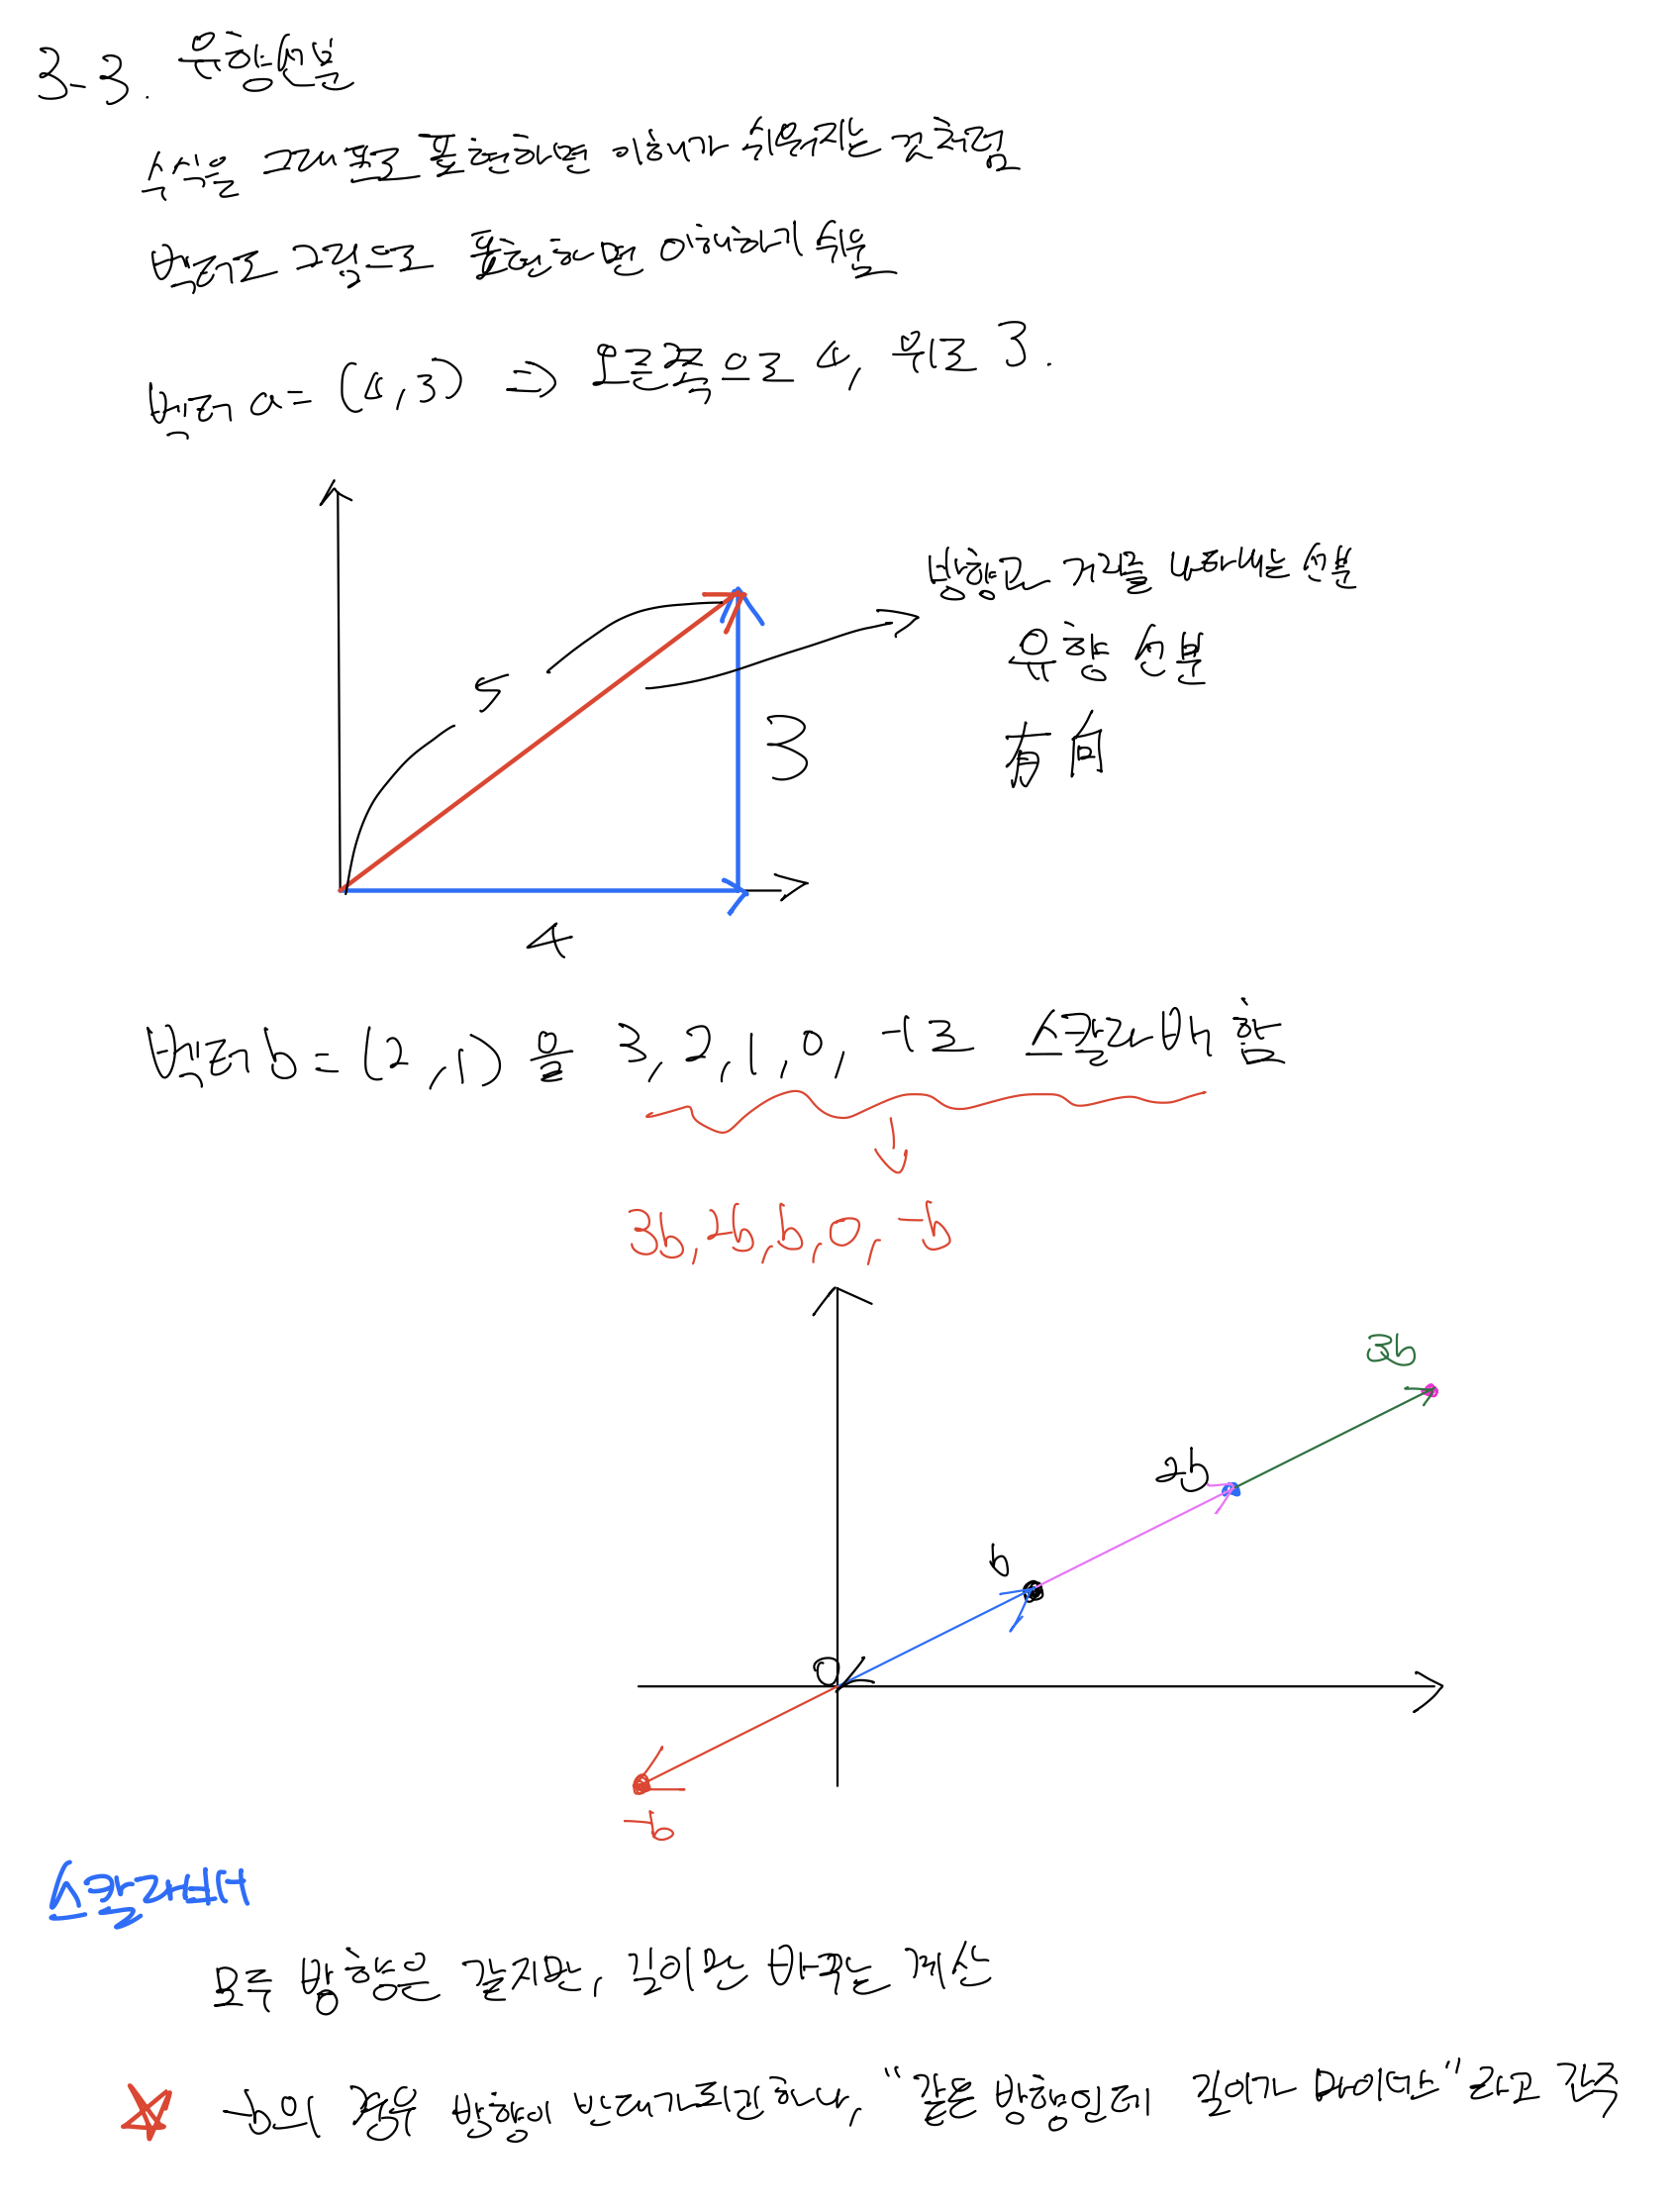 3-3. 유향선분
수식을 그래프로 표현하면 이해가 쉬워지는 것처럼
벡터로 그림으로 표현하면 이해하기 쉬움
벡터 a = (4, 3) ⇒ 오른쪽으로 4, 위로 3.
방향과 거리를 나타내는 선분
유향 선분
有向
5
3
4
벡터 b = (2, 1) 을 3, 2, 1, 0, -1로 스칼라배 함
3b, 2b, b, 0, -b
3b
2b
b
0
-b
스칼라배
모두 방향은 같지만, 길이만 바꾸는 계산
☆ -b의 경우 방향이 반대가 되긴 하나, "같은 방향인데 길이가 마이너스" 라고 간주